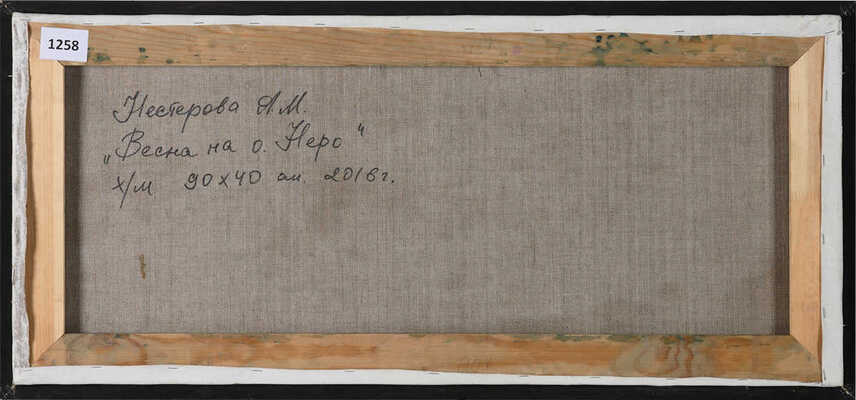 1258
Нестерова А.М.
„Весна на о. Неро"
х/м 90х40 см. 2016г.